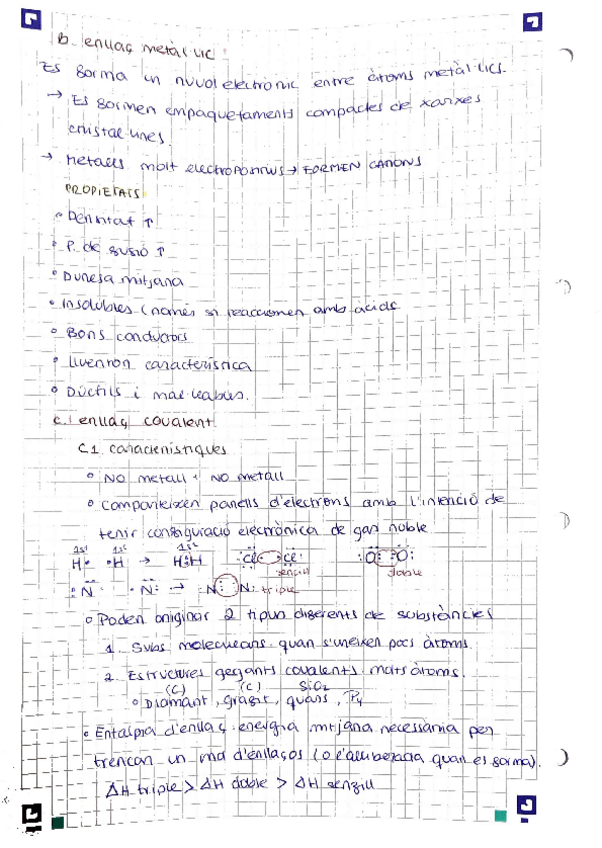 B. enllaç metàl·lic
Es forma un nuvol electronic entre àtoms metàl·lics.
→ Es formen empaquetaments compactes de xarxes
cristal·lines.
→ Metalls molt electropositius → FORMEN CATIONS
PROPIETATS
• Densitat ↑
• P. de fusió ↑
• Duresa mitjana
• Insolubles (només si reaccionen amb àcids
• Bons conductors
• Lluentron característica
• Dúctils i mal·leables.
C. enllaç covalent
C.1 característiques
• NO metall + NO metall
• comparteixen parells d'electrons amb l'intenció de
tenir configuració electrònica de gas noble
1s¹ 1s¹ 1s²
H• •H → H:H :Cl Cl: :O O:
senzill doble
:N• •N: → N N: triple
• Poden originar 2 tipus diferents de substàncies
1. Subs. moleculars. quan s'uneixen pocs àtoms.
2. Estructures gegants covalents. molts àtoms.
(C) (C) SiO₂
• Diamant, grafit, quars, P₄
• Entalpia d'enllaç. energia mitjana necessaria per
trencar un mol d'enllaços (o l'alliberada quan es forma).
ΔH triple > ΔH doble > ΔH senzill